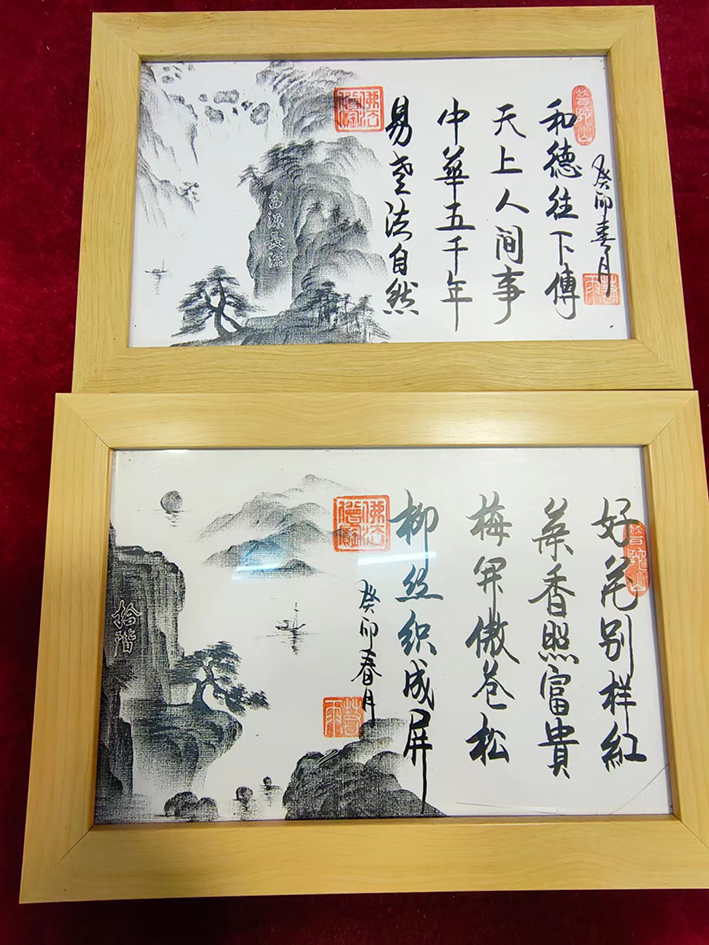 癸卯春月
和德往下傳
天上人間事
中華五千年
易老法自然
普陀山
好花别样紅
葉香照富貴
梅开傲苍松
柳丝织成屏
癸卯春月
普陀山
拾階